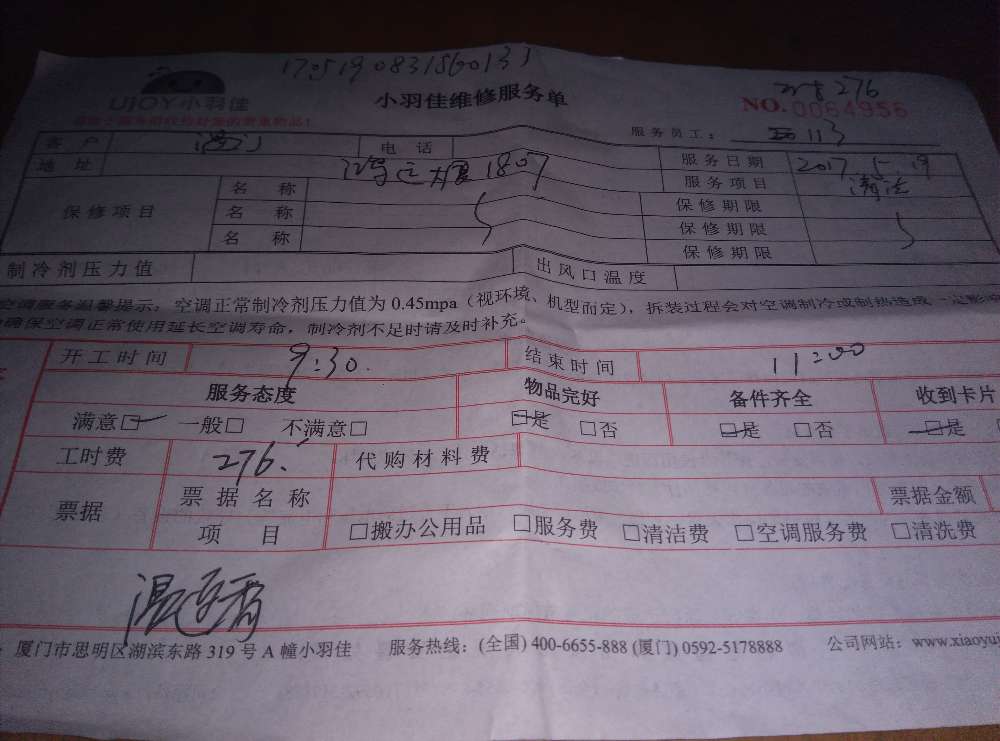 1705190831860133
UJOY小羽佳
小羽佳维修服务单
276
NO. 0064956
服务员工: 113
客户 电话 服务日期 2017.5.19
地址 大厦1807 服务项目 清洁
保修项目 名称 保修期限
名称 保修期限
名称 保修期限
制冷剂压力值 出风口温度
空调服务温馨提示:空调正常制冷剂压力值为0.45mpa(视环境、机型而定),拆装过程会对空调制冷或制热造成一定影响
确保空调正常使用延长空调寿命,制冷剂不足时请及时补充。
开工时间 9:30. 结束时间 11:00
服务态度 物品完好 备件齐全 收到卡片
满意□ 一般□ 不满意□ □是 □否 □是 □否 □是
工时费 276. 代购材料费
票据 票据名称 票据金额
项目 □搬办公用品 □服务费 □清洁费 □空调服务费 □清洗费
厦门市思明区湖滨东路319号A幢小羽佳 服务热线:(全国)400-6655-888(厦门)0592-5178888 公司网站:www.xiaoyu